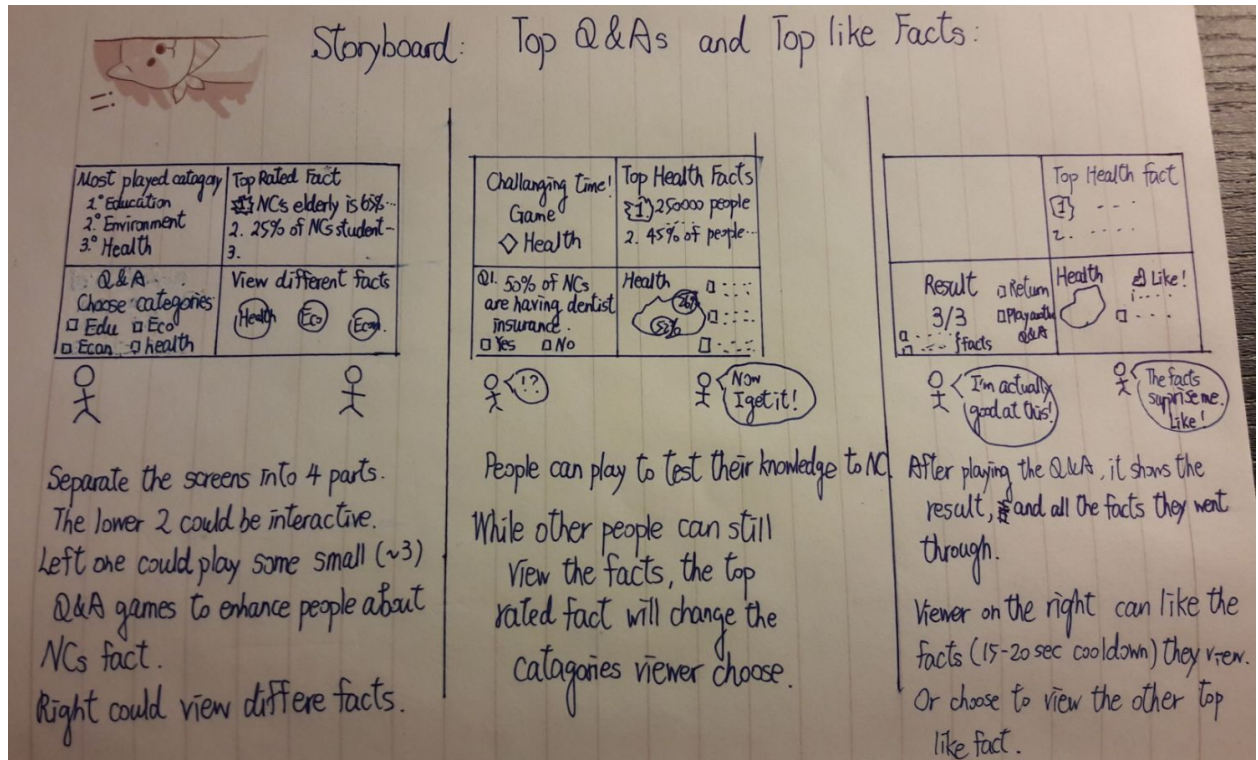 Storyboard: Top Q&As and Top like Facts:
Most played catagory
1.° Education
2.° Environment
3.° Health
Top Rated Fact
1 NCs elderly is 65% --
2. 25% of NCs student --
3.
Q&A
Choose categories
Edu Eco
Econ health
View different facts
Health Eco Econ
Separate the screens into 4 parts.
The lower 2 could be interactive.
Left one could play some small (~3)
Q&A games to enhance people about
NCs fact.
Right could view differe facts.
Challanging time!
Game
Health
Top Health Facts
1 250000 people
2. 45% of people --
Q1. 50% of NCs
are having dentist
insurance.
Yes No
Health
26%
52%
!?
Now
I get it!
People can play to test their knowledge to NC.
While other people can still
view the facts, the top
rated fact will change the
catagories viewer choose.
Top Health fact
1 - - -
2. - - - -
Result
3/3
Return
Play another
Q&A
facts
Health
Like!
I'm actually
good at this!
The facts
suprise me.
Like!
After playing the Q&A, it shows the
result, and all the facts they went
through.
Viewer on the right can like the
facts (15-20 sec cooldown) they view.
Or choose to view the other top
like fact.